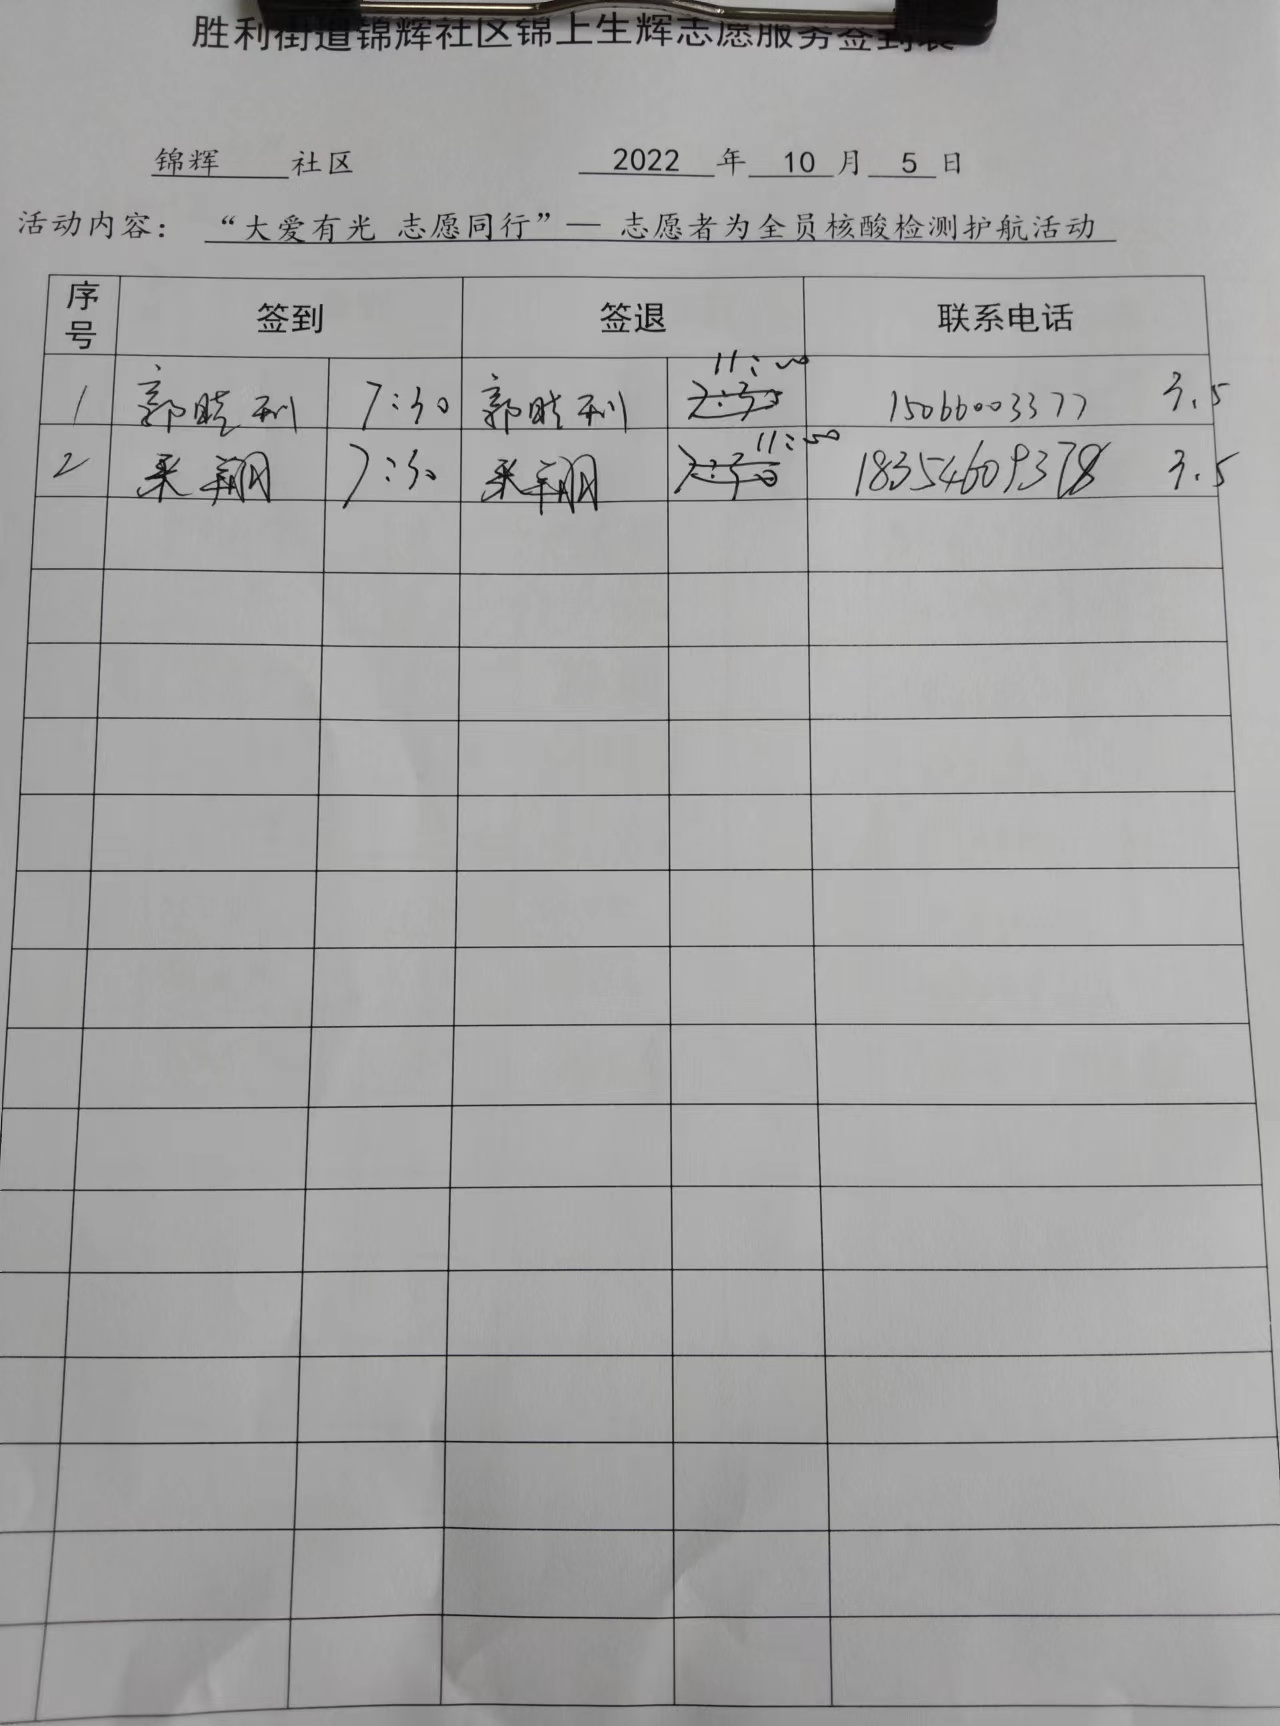 胜利街道锦辉社区锦上生辉志愿服务签到表
锦辉 社区 2022 年 10 月 5 日
活动内容： “大爱有光 志愿同行”— 志愿者为全员核酸检测护航活动
序号 签到 签退 联系电话
1 郭晓利 7:30 郭晓利 11:00 15066003377 3.5
2 7:30 11:00 18354609378 3.5